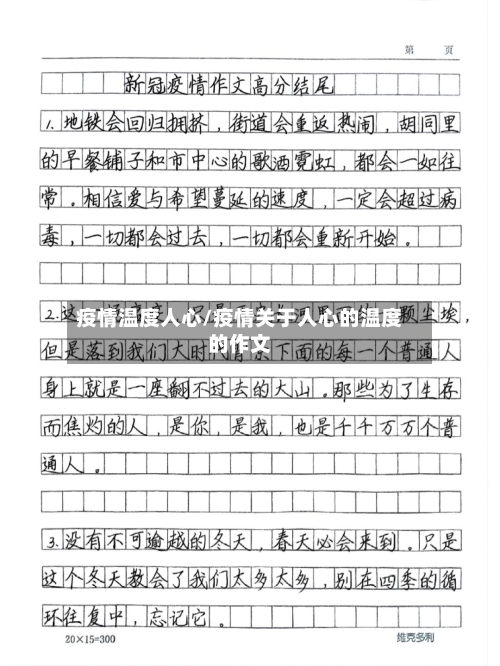 第 页
新冠疫情作文高分结尾
1.地铁会回归拥挤，街道会重返热闹，胡同里
的早餐铺子和市中心的歌酒霓虹，都会一如往
常。相信爱与希望蔓延的速度，一定会超过病
毒，一切都会过去，一切都会重新开始。
2.这 颗尘埃，
疫情温度人心/疫情关于人心的温度
的作文
但是落到我们大时 下面的每一个普通人
身上就是一座翻不过去的大山。那些为了生存
而焦灼的人，是你，是我，也是千千万万个普
通人。
3.没有不可逾越的冬天，春天必会来到。只是
这个冬天教会了我们太多太多，别在四季的循
环往复中，忘记它。
20×15=300 维克多利